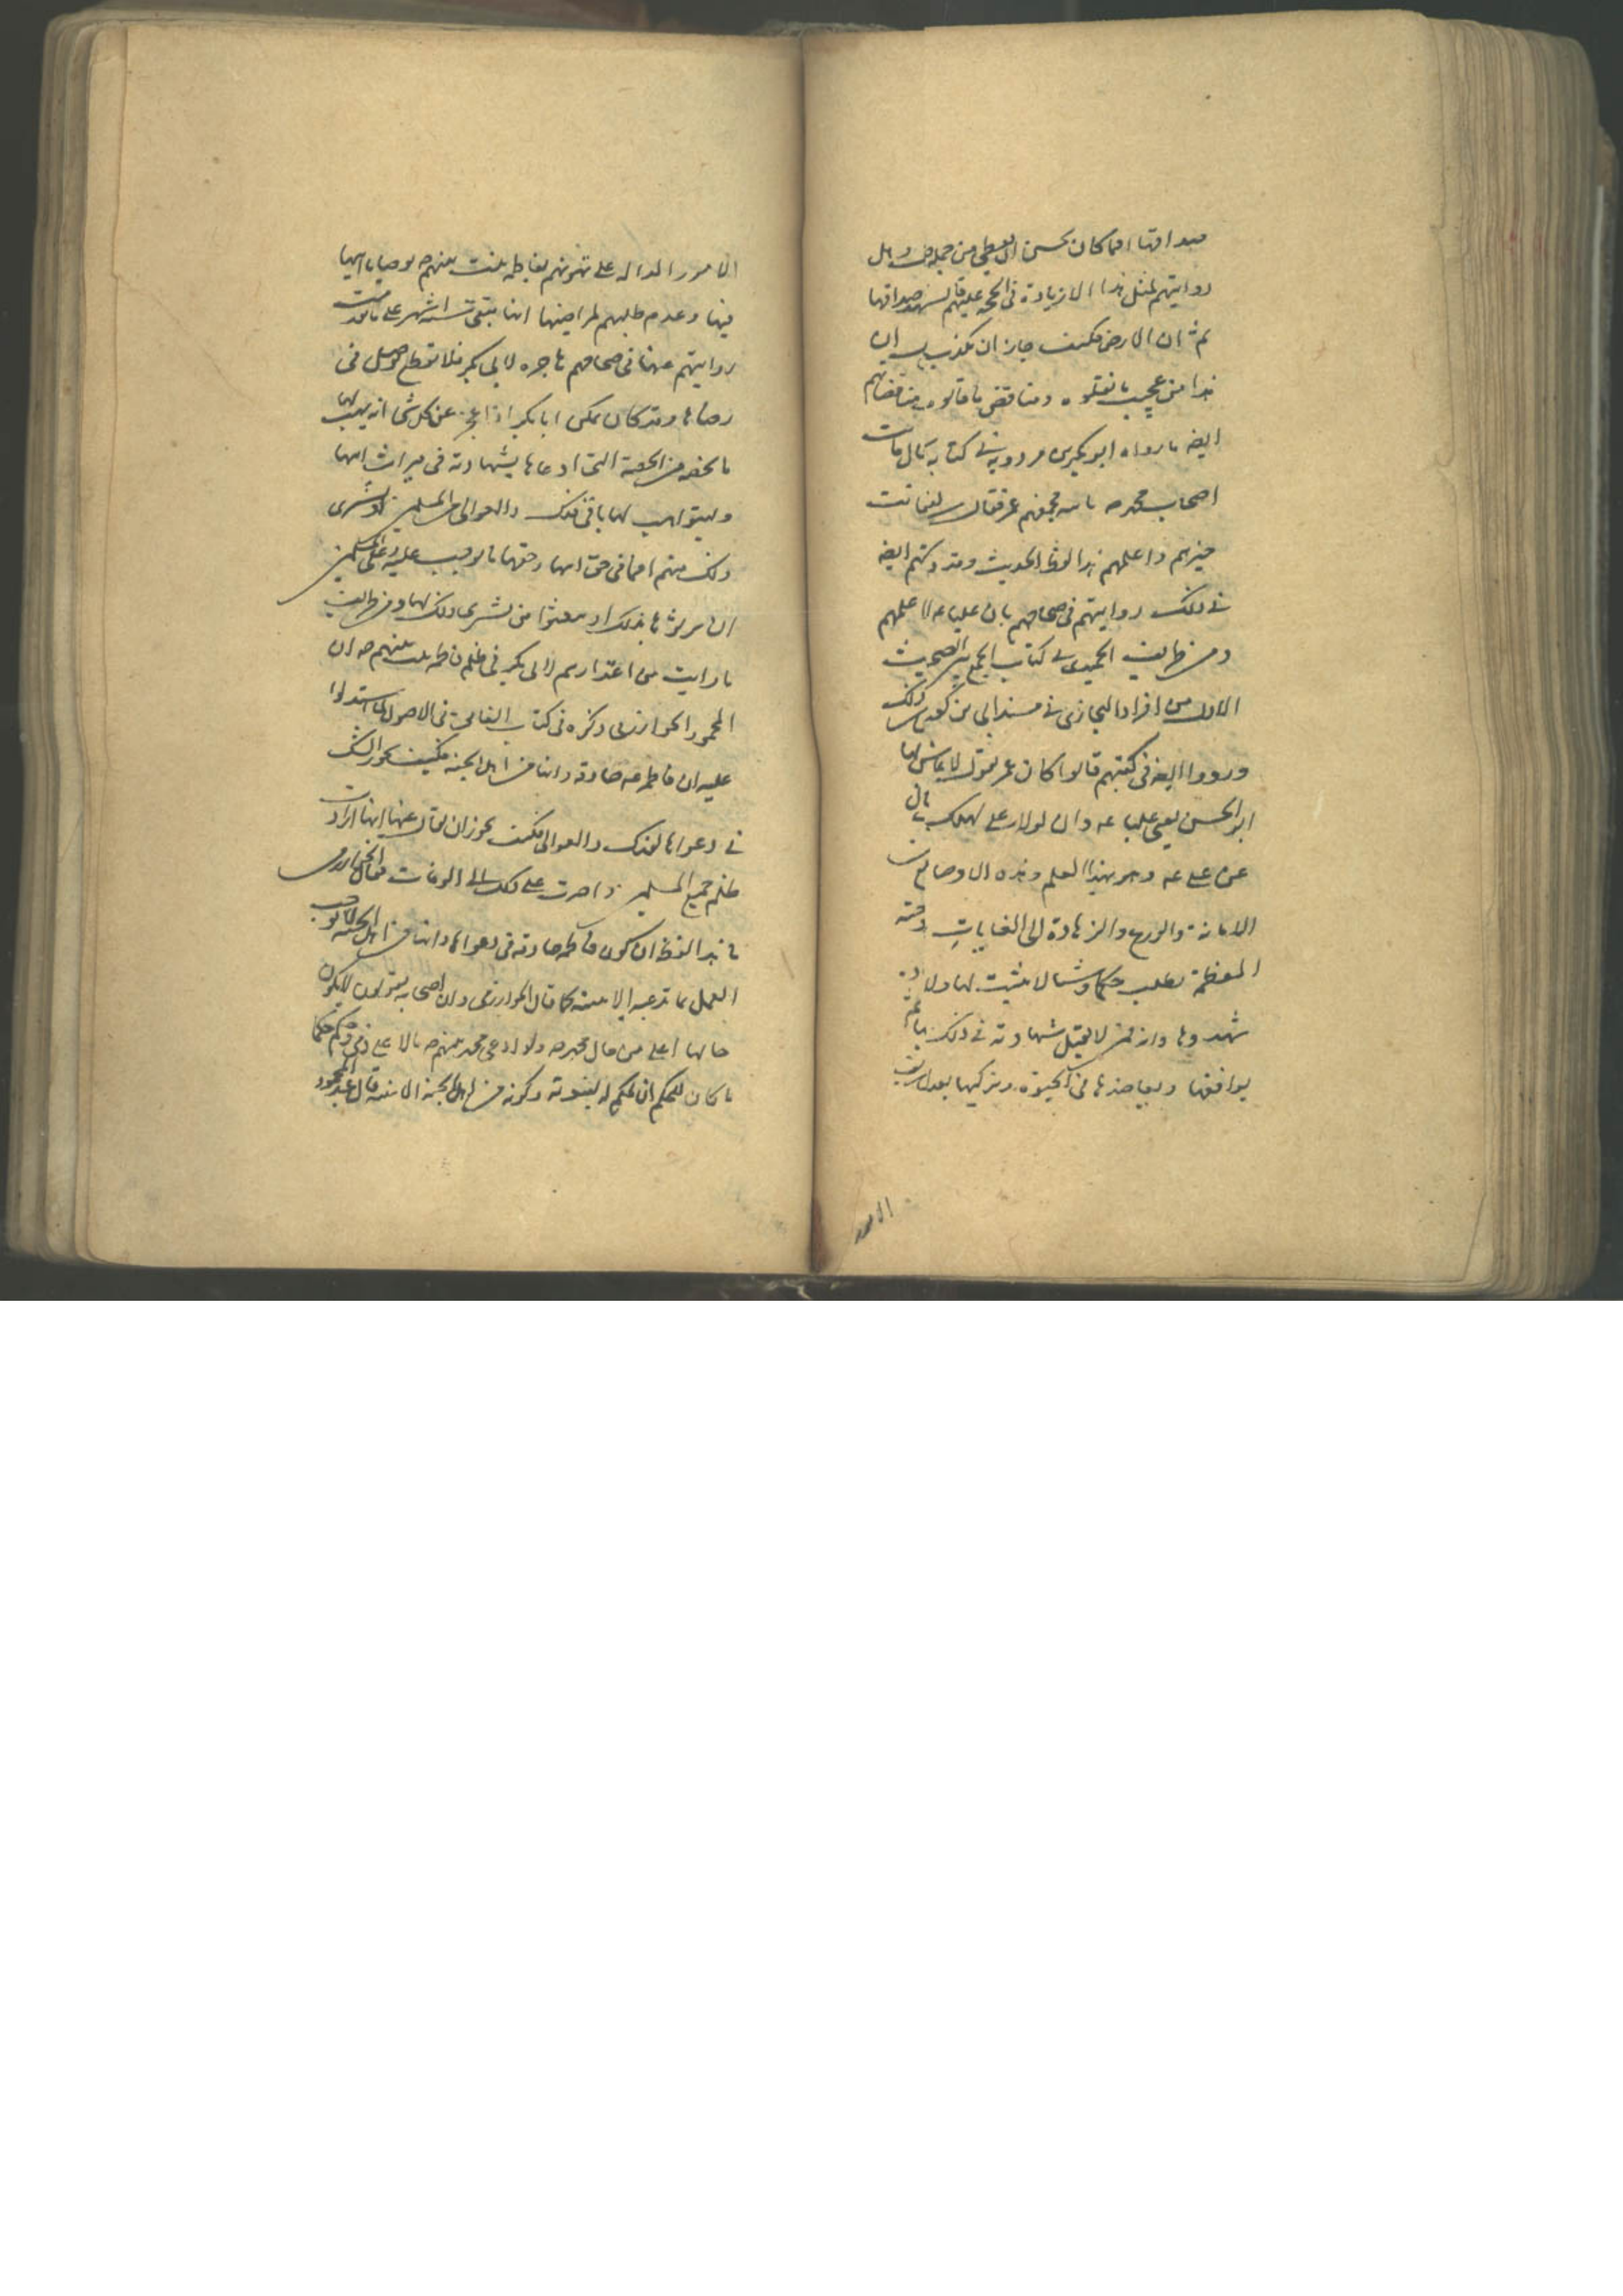 صداقها افما كان يحسن ان يعطى من جملة وهل
روايتهم لمثل هذا الا زيادة فى الحجة عليهم شهد صداقها
ثم ان الارض فكيف جاز ان تكذب ان
هذا من عجيب ما نقلوه ومناقض ما قالوه ومناقضاتهم
ايضا ما رواه ابو بكر بن مردويه فى كتابه قال مات
اصحاب محمد ص
خيرهم واعلمهم هذا لفظ الحديث وقد ايضا
فى ذلك روايتهم فى صحاحهم بان عليا ع اعلمهم
ومن طرايف الحميدى فى كتاب الجمع بين الصحيحين
الاول من افراد البخارى فى مسند ابى بن كعب ذلك
ورووا ايضا فى كتبهم قالوا كان عمر يقول لا عاش لها
ابو الحسن يعنى عليا ع وان لولا على لهلك
عن على ع وهو بهذا العلم وهذه الاوصاف
الامانة والورع والزهادة الى الغايات
المعظمة يطلب حكما وشيئا لا يثبت لها ولا
شهدوها وانه ممن لا تقبل شهادته فى ذلك
يوافقها ويعاضدها فى الحيوة ويزكيها بعد
الامور
الامور الدالة على تهوينهم بفاطمة بنت نبيهم ص بوصايا ابيها
فيها وعدم طلبهم لمراضيها انها بقيت ستة اشهر على ما تقدمت
روايتهم عنها فى صحاحهم هاجرة لابى بكر فلا توصل فى
رضاها وقد كان يمكن ابا بكر اذا عجز عن كل شئ انه يهب لها
ما يخصه من الحصة التى ادعاها بشهادته فى ميراث ابيها
ويستوهب لها باقى فدك والعوالى من المسلمين او يشترى
ذلك منهم اما فى حق ابيها وحقها ما يوجب عليه وعلى المسلمين
ان يؤثروها بذلك او يمتنعوا من يشترى ذلك لها ومن طرايف
ما رايت من اعتذارهم لابى بكر فى ظلم فاطمة بنت نبيهم ص ان
المحمود الخوارزمى ذكره فى كتاب الفائق فى الاصول لما استدلوا
عليه ان فاطمة ع صادقة وانها من اهل الجنة فكيف يجوز الشك
فى دعواها لفدك والعوالى فكيف يجوز ان يقال عنها انها ارادت
ظلم جميع المسلمين واصرت على ذلك الى الوفات فقال الخوارزمى
ما هذا لفظه ان كون فاطمة صادقة فى دعواها وانها من اهل الجنة لا يوجب
العمل بما تدعيه الا ببينة كما قال الخوارزمى وان اصحابه يقولون لا يكون
حالها اعلى من حال محمد ص ولو ادعى محمد نبيهم ص مالا على ذمى وحكم حكما
ما كان للحكم ان يحكم له لنبوته وكونه من اهل الجنة الا ببينة قال عبد المحمود